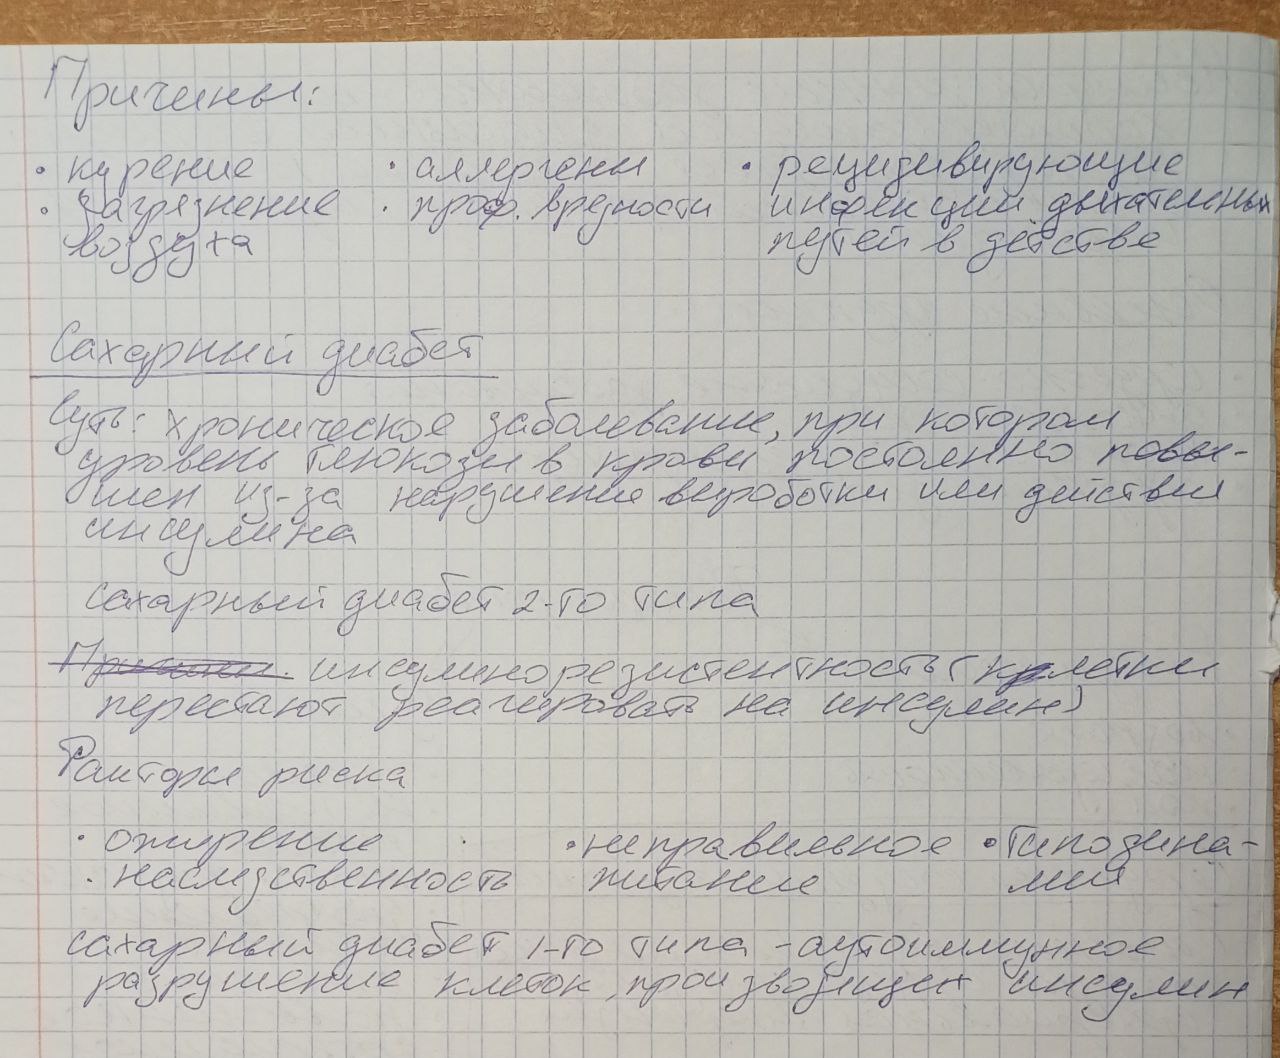 Причины:
• курение
• загрязнение
воздуха
• аллергены
• проф. вредности
• рецидивирующие
инфекции дыхательных
путей в детстве
Сахарный диабет
Суть: хроническое заболевание, при котором
уровень глюкозы в крови постоянно повы-
шен из-за нарушения выработки или действия
инсулина
сахарный диабет 2-го типа
инсулинорезистентность (клетки
перестают реагировать на инсулин)
Факторы риска
• ожирение
• наследственность
• неправильное
питание
• гиподина-
мия
сахарный диабет 1-го типа - аутоиммунное
разрушение клеток, производящих инсулин